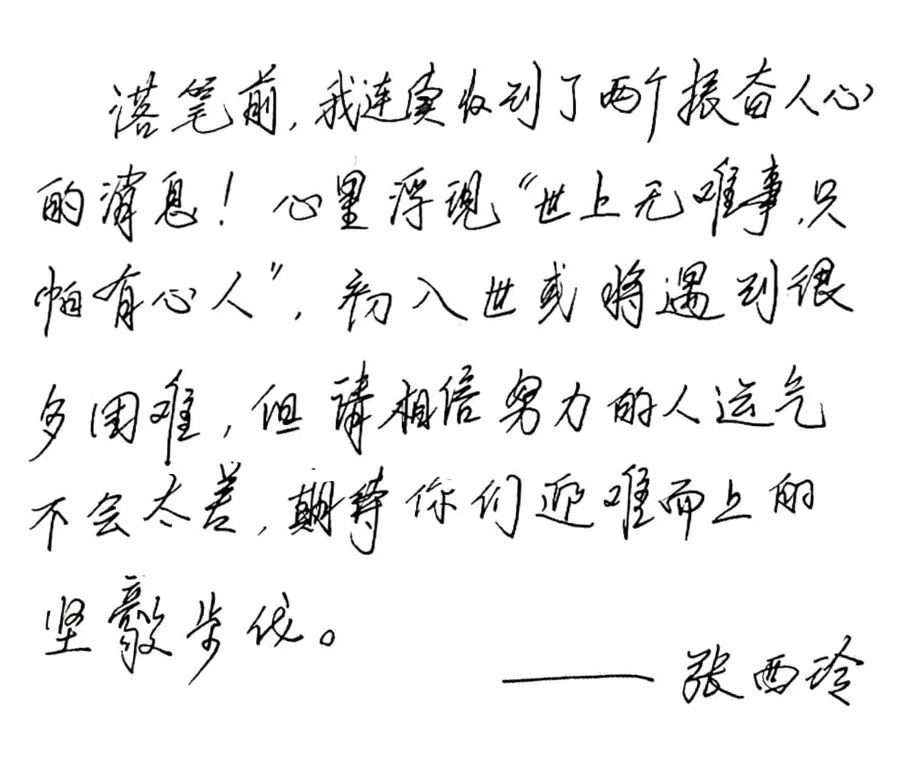 落笔前,我连续收到了两个振奋人心
的消息!心里浮现“世上无难事,只
怕有心人”,初入世或将遇到很
多困难,但请相信努力的人运气
不会太差,期待你们迎难而上的
坚毅步伐。
——张西玲